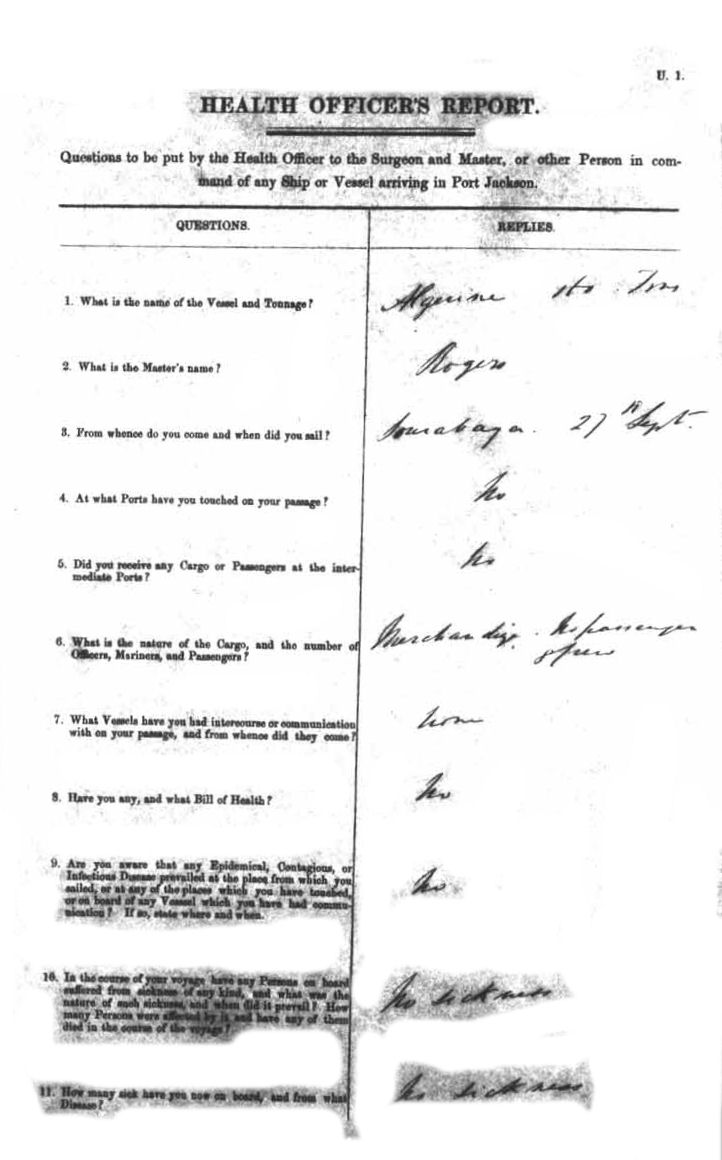 U. 1.
HEALTH OFFICER'S REPORT.
Questions to be put by the Health Officer to the Surgeon and Master, or other Person in com-
mand of any Ship or Vessel arriving in Port Jackson.
QUESTIONS.
REPLIES.
1. What is the name of the Vessel and Tonnage?
Algerine Tons
2. What is the Master's name?
Rogers
3. From whence do you come and when did you sail?
Sourabaya. 27th Sept.
4. At what Ports have you touched on your passage?
No
5. Did you receive any Cargo or Passengers at the inter-
mediate Ports?
No
6. What is the nature of the Cargo, and the number of
Officers, Mariners, and Passengers?
Merchandize. No passenger
8 crew
7. What Vessels have you had intercourse or communication
with on your passage, and from whence did they come?
None
8. Have you any, and what Bill of Health?
No
9. Are you aware that any Epidemical, Contagious, or
Infectious Disease prevailed at the place from which you
sailed, or at any of the places which you have touched,
or on board of any Vessel which you have had commu-
nication? If so, state where and when.
No
10. In the course of your voyage have any Persons on board
suffered from sickness of any kind, and what was the
nature of such sickness, and when did it prevail? How
many Persons were affected by it and have any of them
died in the course of the voyage?
No sickness
11. How many sick have you now on board, and from what
Disease?
No sickness